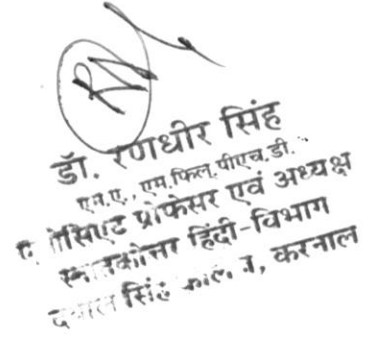 डॉ. रणधीर सिंह
एम.ए., एम.फिल. पीएच.डी.
एसोसिएट प्रोफेसर एवं अध्यक्ष
स्नातकोत्तर हिंदी-विभाग
दयाल सिंह कॉलेज, करनाल